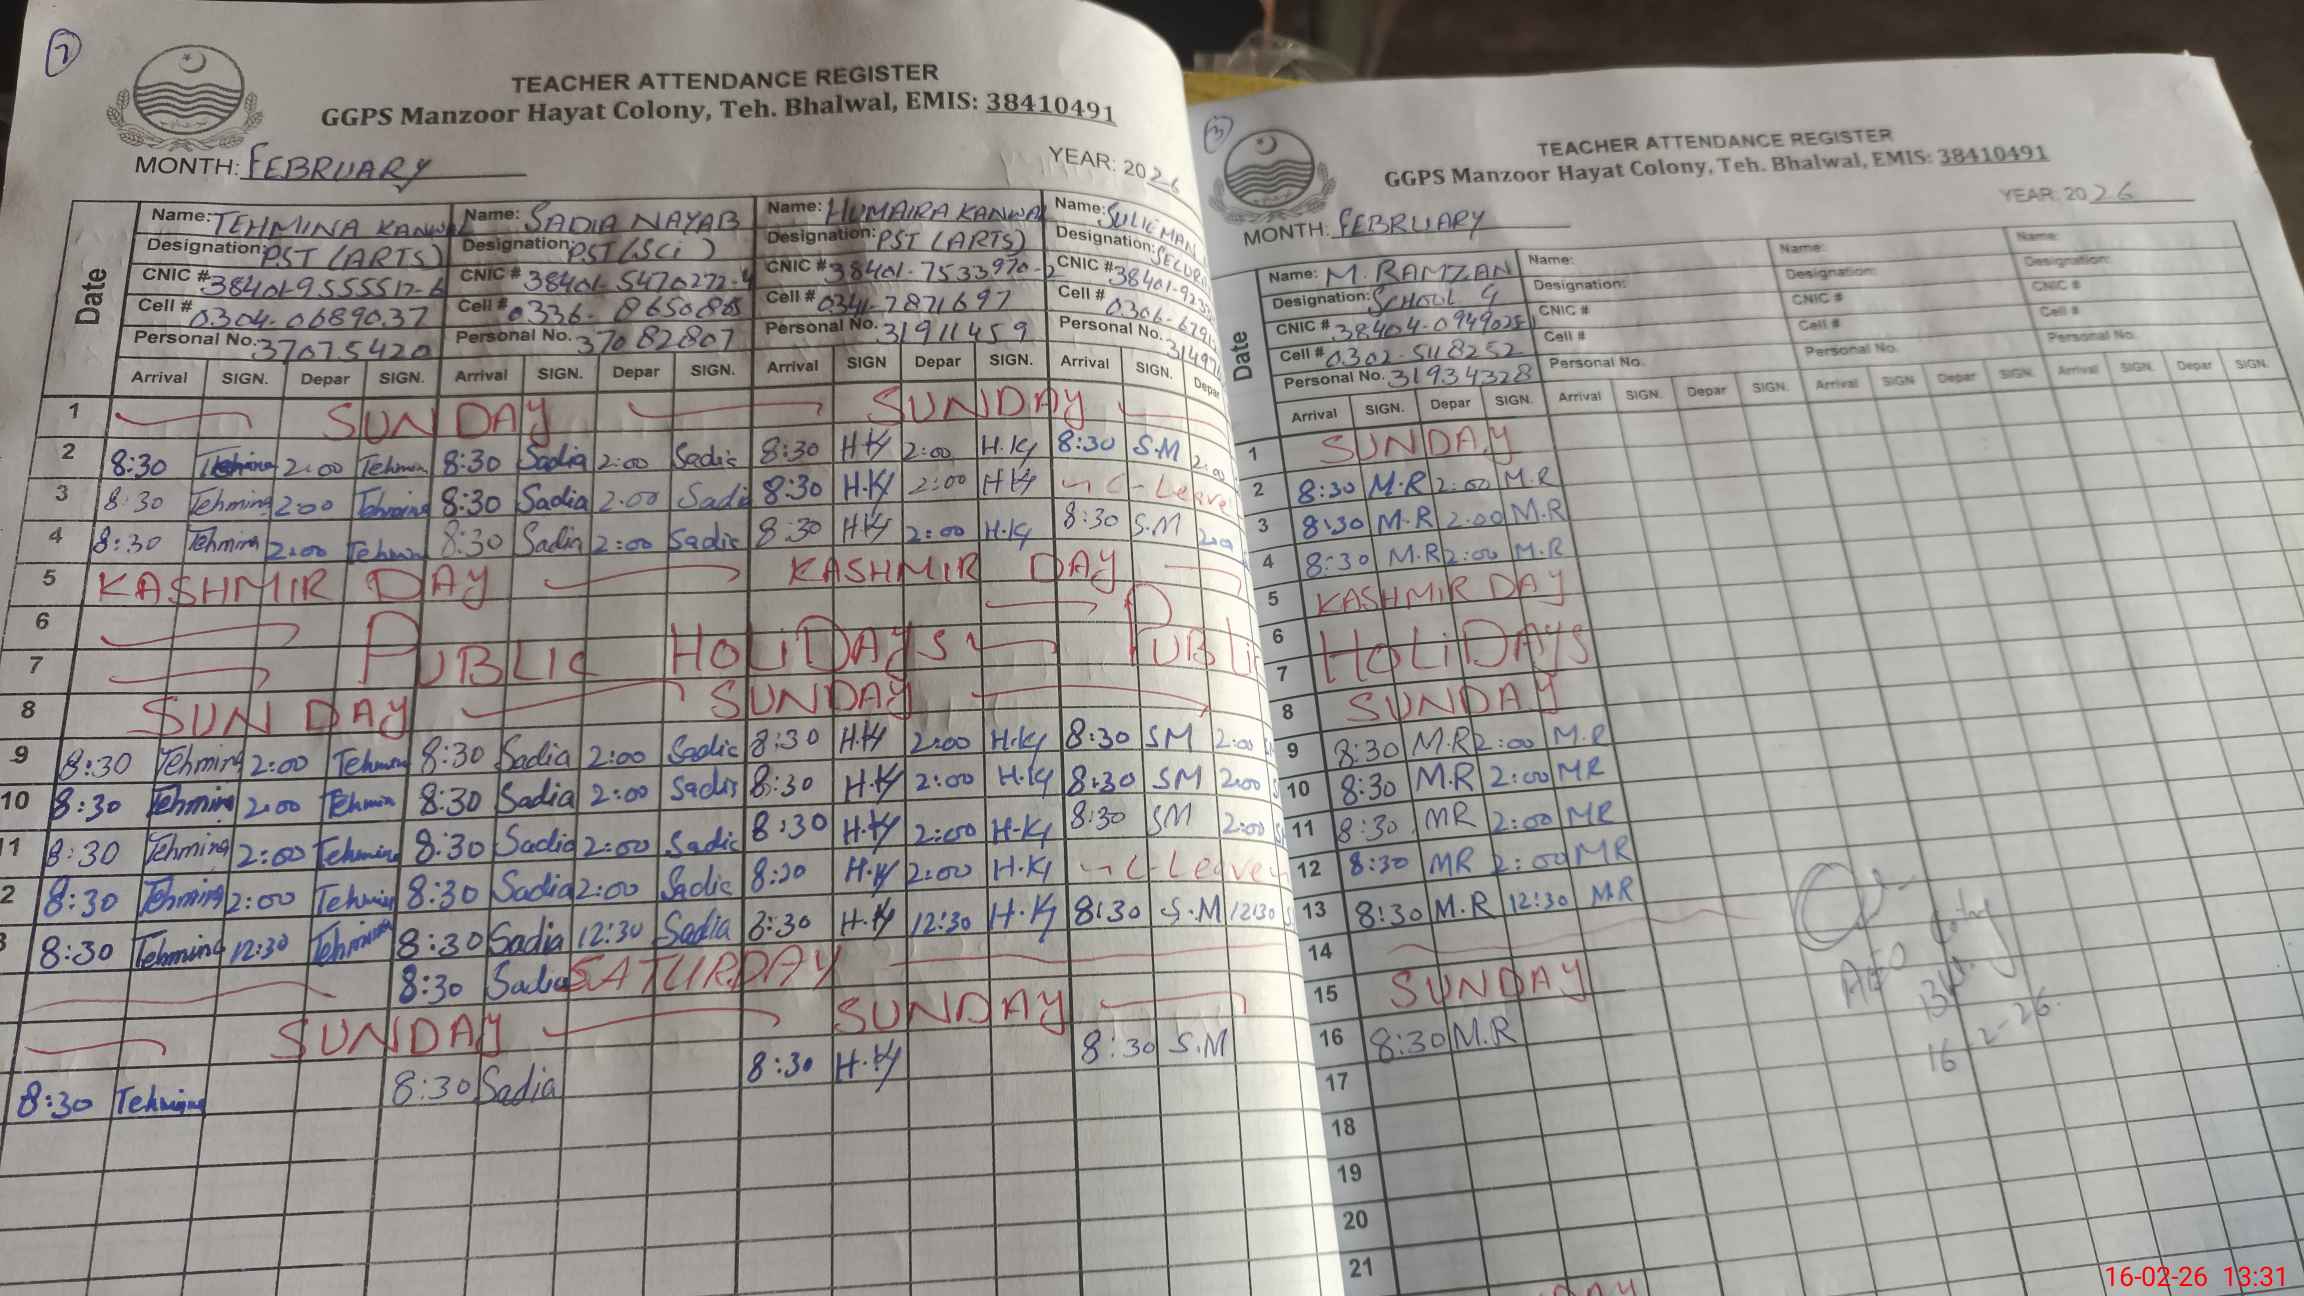 TEACHER ATTENDANCE REGISTER
GGPS Manzoor Hayat Colony, Teh. Bhalwal, EMIS: 38410491
MONTH: FEBRUARY YEAR: 2026
Date
Name: TEHMINA KANWAL Name: SADIA NAYAB Name: HUMAIRA KANWAL Name: SULIEMAN
Designation: PST (ARTS) Designation: PST (Sci) Designation: PST (ARTS) Designation:
CNIC # CNIC # 38401-5470272-4 CNIC # 38401-7533970-2 CNIC #
Cell # 0304-0689037 Cell # 0336- Cell # 0341-7871697 Cell #
Personal No. 37075420 Personal No. 37082807 Personal No. 31911459 Personal No.
Arrival SIGN. Depar SIGN. Arrival SIGN. Depar SIGN. Arrival SIGN Depar SIGN. Arrival SIGN. Depar
1 SUNDAY SUNDAY
2 8:30 Tehmina 2:00 Tehmin 8:30 Sadia 2:00 Sadia 8:30 H.K 2:00 H.K 8:30 S.M 2:00
3 8:30 Tehmina 2:00 Tehmina 8:30 Sadia 2:00 Sadi 8:30 H.K 2:00 H.K C-Leave
4 8:30 Tehmina 2:00 Tehmin 8:30 Sadia 2:00 Sadia 8:30 H.K 2:00 H.K 8:30 S.M 2:00
5 KASHMIR DAY KASHMIR DAY
6
7 PUBLIC HOLiDAYS PUBLiC
8 SUNDAY SUNDAY
9 8:30 Tehmina 2:00 Tehmina 8:30 Sadia 2:00 Sadia 8:30 H.K 2:00 H.K 8:30 SM 2:00
10 8:30 Tehmina 2:00 Tehmin 8:30 Sadia 2:00 Sadia 8:30 H.K 2:00 H.K 8:30 SM 2:00
1 8:30 Tehmina 2:00 Tehmina 8:30 Sadia 2:00 Sadia 8:30 H.K 2:00 H.K 8:30 SM 2:00
2 8:30 Tehmina 2:00 Tehmina 8:30 Sadia 2:00 Sadia H.K 2:00 H.K C-Leave
8:30 Tehmina 12:30 Tehmina 8:30 Sadia 12:30 Sadia 8:30 H.K 12:30 H.K 8:30 S.M 12:30
8:30 Sadia SATURDAY
SUNDAY SUNDAY
8:30 Tehmina 8:30 Sadia 8:30 H.K 8:30 S.M
TEACHER ATTENDANCE REGISTER
GGPS Manzoor Hayat Colony, Teh. Bhalwal, EMIS: 38410491
MONTH: FEBRUARY YEAR: 2026
Date
Name: M. RAMZAN Name: Name: Name:
Designation: SCHOOL G Designation: Designation: Designation:
CNIC # CNIC # CNIC # CNIC #
Cell # 0302-5118252 Cell # Cell # Cell #
Personal No. 31934328 Personal No. Personal No. Personal No.
Arrival SIGN. Depar SIGN. Arrival SIGN. Depar SIGN. Arrival SIGN Depar SIGN. Arrival SIGN. Depar SIGN.
1 SUNDAY
2 8:30 M.R 2:00 M.R
3 8:30 M.R 2:00 M.R
4 8:30 M.R 2:00 M.R
5 KASHMIR DAY
6 HOLiDAYS
7
8 SUNDAY
9 8:30 M.R 2:00 M.R
10 8:30 M.R 2:00 MR
11 8:30 MR 2:00 MR
12 8:30 MR 2:00 MR
13 8:30 M.R 12:30 M.R
14
15 SUNDAY
16 8:30 M.R
17
18
19
20
21
AEO
16-2-26.
16-02-26 13:31